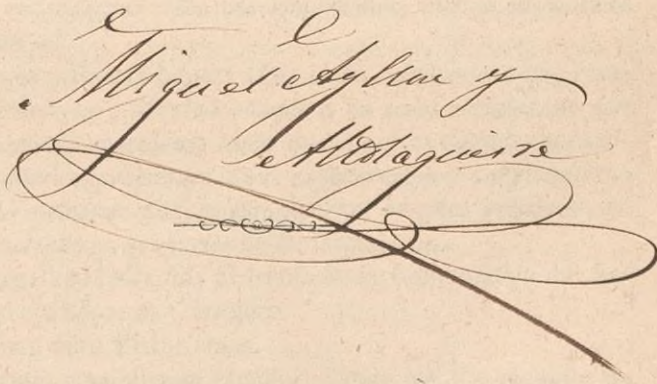 Miguel Ayllon y
Altolaguirre